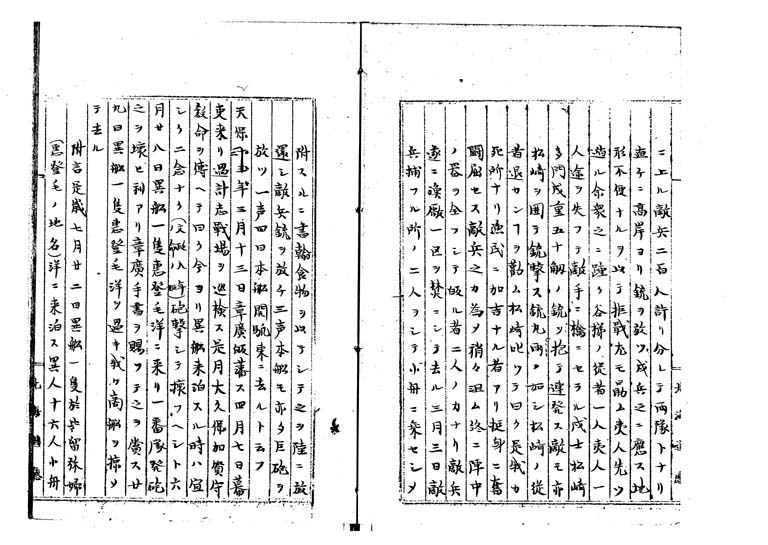 ニエル敵兵二百人許リ分レテ両隊トナリ
直チニ高岸ヨリ銃ヲ放ツ戍兵之ニ應ス地
形不便ナルヲ以テ拒戦尤モ勗ム夷人先ツ
遁ル余衆之ニ踵ク谷梯ノ従者一人夷人一
人途ヲ失フテ敵手ニ擒ニセラル戍士松崎
多門戍重五十觔ノ銃ヲ抱テ連発ス敵モ亦
松崎ヲ囲テ銃撃ス銃丸雨ノ如シ松崎ノ従
者退カンヿヲ勸ム松崎叱ツテ曰ク是我カ
死所ナリ漁民ニ加吉ナル者アリ挺身ニ奮
闘屈セス敵兵之カ為メ稍々沮ム終ニ陣中
ノ器ヲ全フシテ皈ル者二人ノ力ナリ敵兵
遂ニ漁廠一区ヲ焚ニシテ去ル三月三日敵
兵捕フル所ノ二人ヲシテ小舟ニ乘セシメ
附スルニ書翰食物ヲ以テシテ之ヲ陸ニ放
還シ敵兵銃ヲ放ツ三声本船モ亦タ巨砲ヲ
放ツ一声四日本船開帆東ニ去ルト云フ
天保 年三月十三日章廣皈藩ス四月七日蕃
吏来リ過計志戰場ヲ巡検ス是月大久保加賀守
教命ヲ傳ヘテ曰ク今ヨリ異船来泊スル時ハ宜
シク二念ナク(文政八ノ命時)砲撃シテ攘フヘシト六
月廿八日異船一隻惠登毛洋ニ来リ一番隊発砲
之ヲ壊ヒ利アリ章廣手書ヲ賜フテ之ヲ賞ス廿
九日異船一隻惠登毛洋ヲ過キ我カ商船ヲ掠メ
テ去ル
附言是歳七月廿二日異船一隻於戸留張婦
(惠登毛ノ地名)洋ニ来泊ス異人十六人小舟